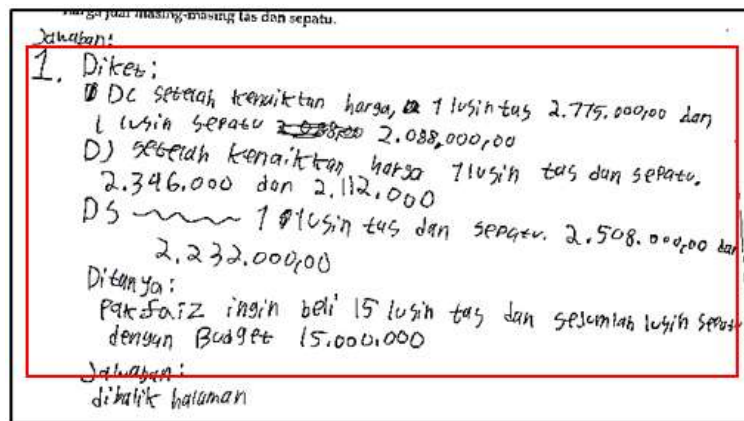 harga jual masing-masing tas dan sepatu.
Jawaban:
1. Diket:
DC setelah kenaikan harga, 1 lusin tas 2.775.000,00 dan
1 lusin sepatu 2.088,000,00
DJ setelah kenaikkan harga 1 lusin tas dan sepatu.
2.346.000 dan 2.112.000
DS 1 lusin tas dan sepatu. 2.508.000,00 dan
2.232.000,00
Ditanya:
Pak Faiz ingin beli 15 lusin tas dan sejumlah lusin sepatu
dengan Budget 15.000.000
Jawaban:
dibalik halaman